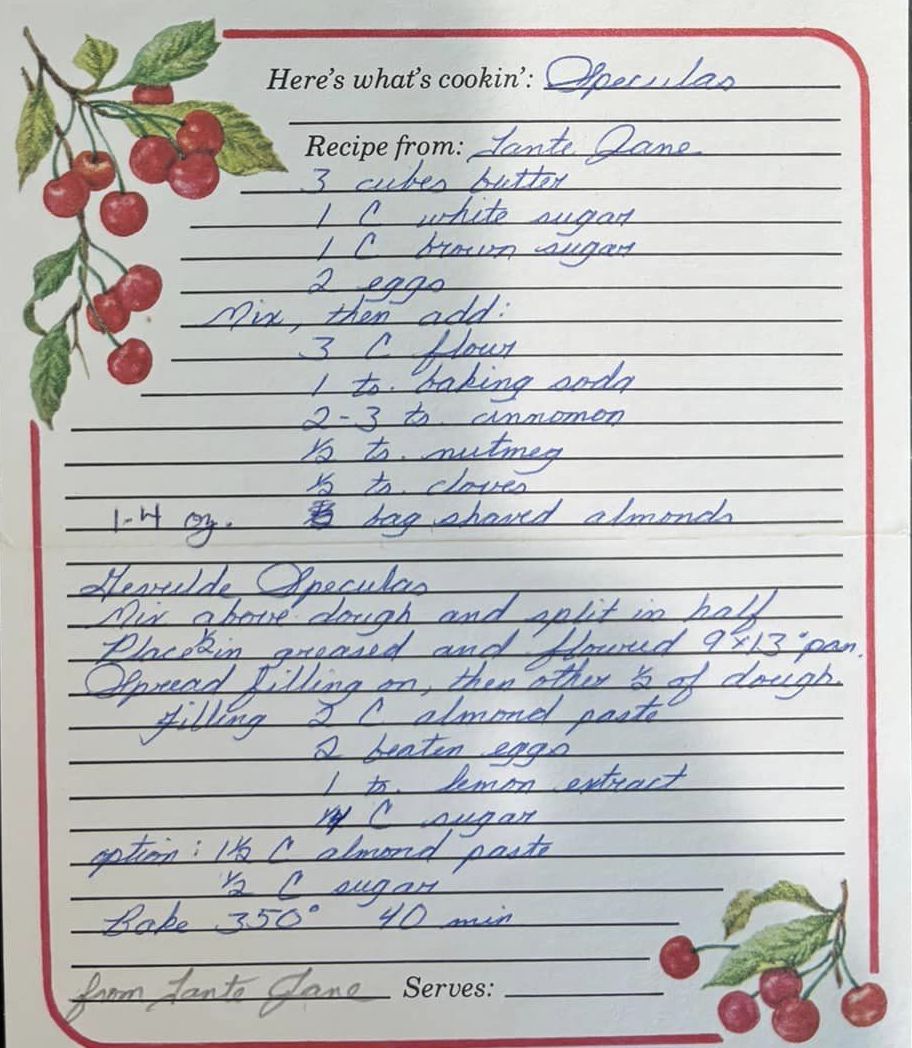 Here's what's cookin': Speculas
Recipe from: Tante Jane
3 cubes butter
1 C white sugar
1 C brown sugar
2 eggs
Mix, then add:
3 C flour
1 ts. baking soda
2-3 ts. cinnomon
½ ts. nutmeg
½ ts. cloves
1-4 oz. bag shaved almonds
Gevulde Speculas
Mix above dough and split in half
Place ½ in greased and floured 9"x13" pan.
Spread filling on, then other ½ of dough.
filling 2 C almond paste
2 beaten eggs
1 ts. lemon extract
¼ C sugar
option: 1½ C almond paste
½ C sugar
Bake 350° 40 min
from Tante Jane Serves: